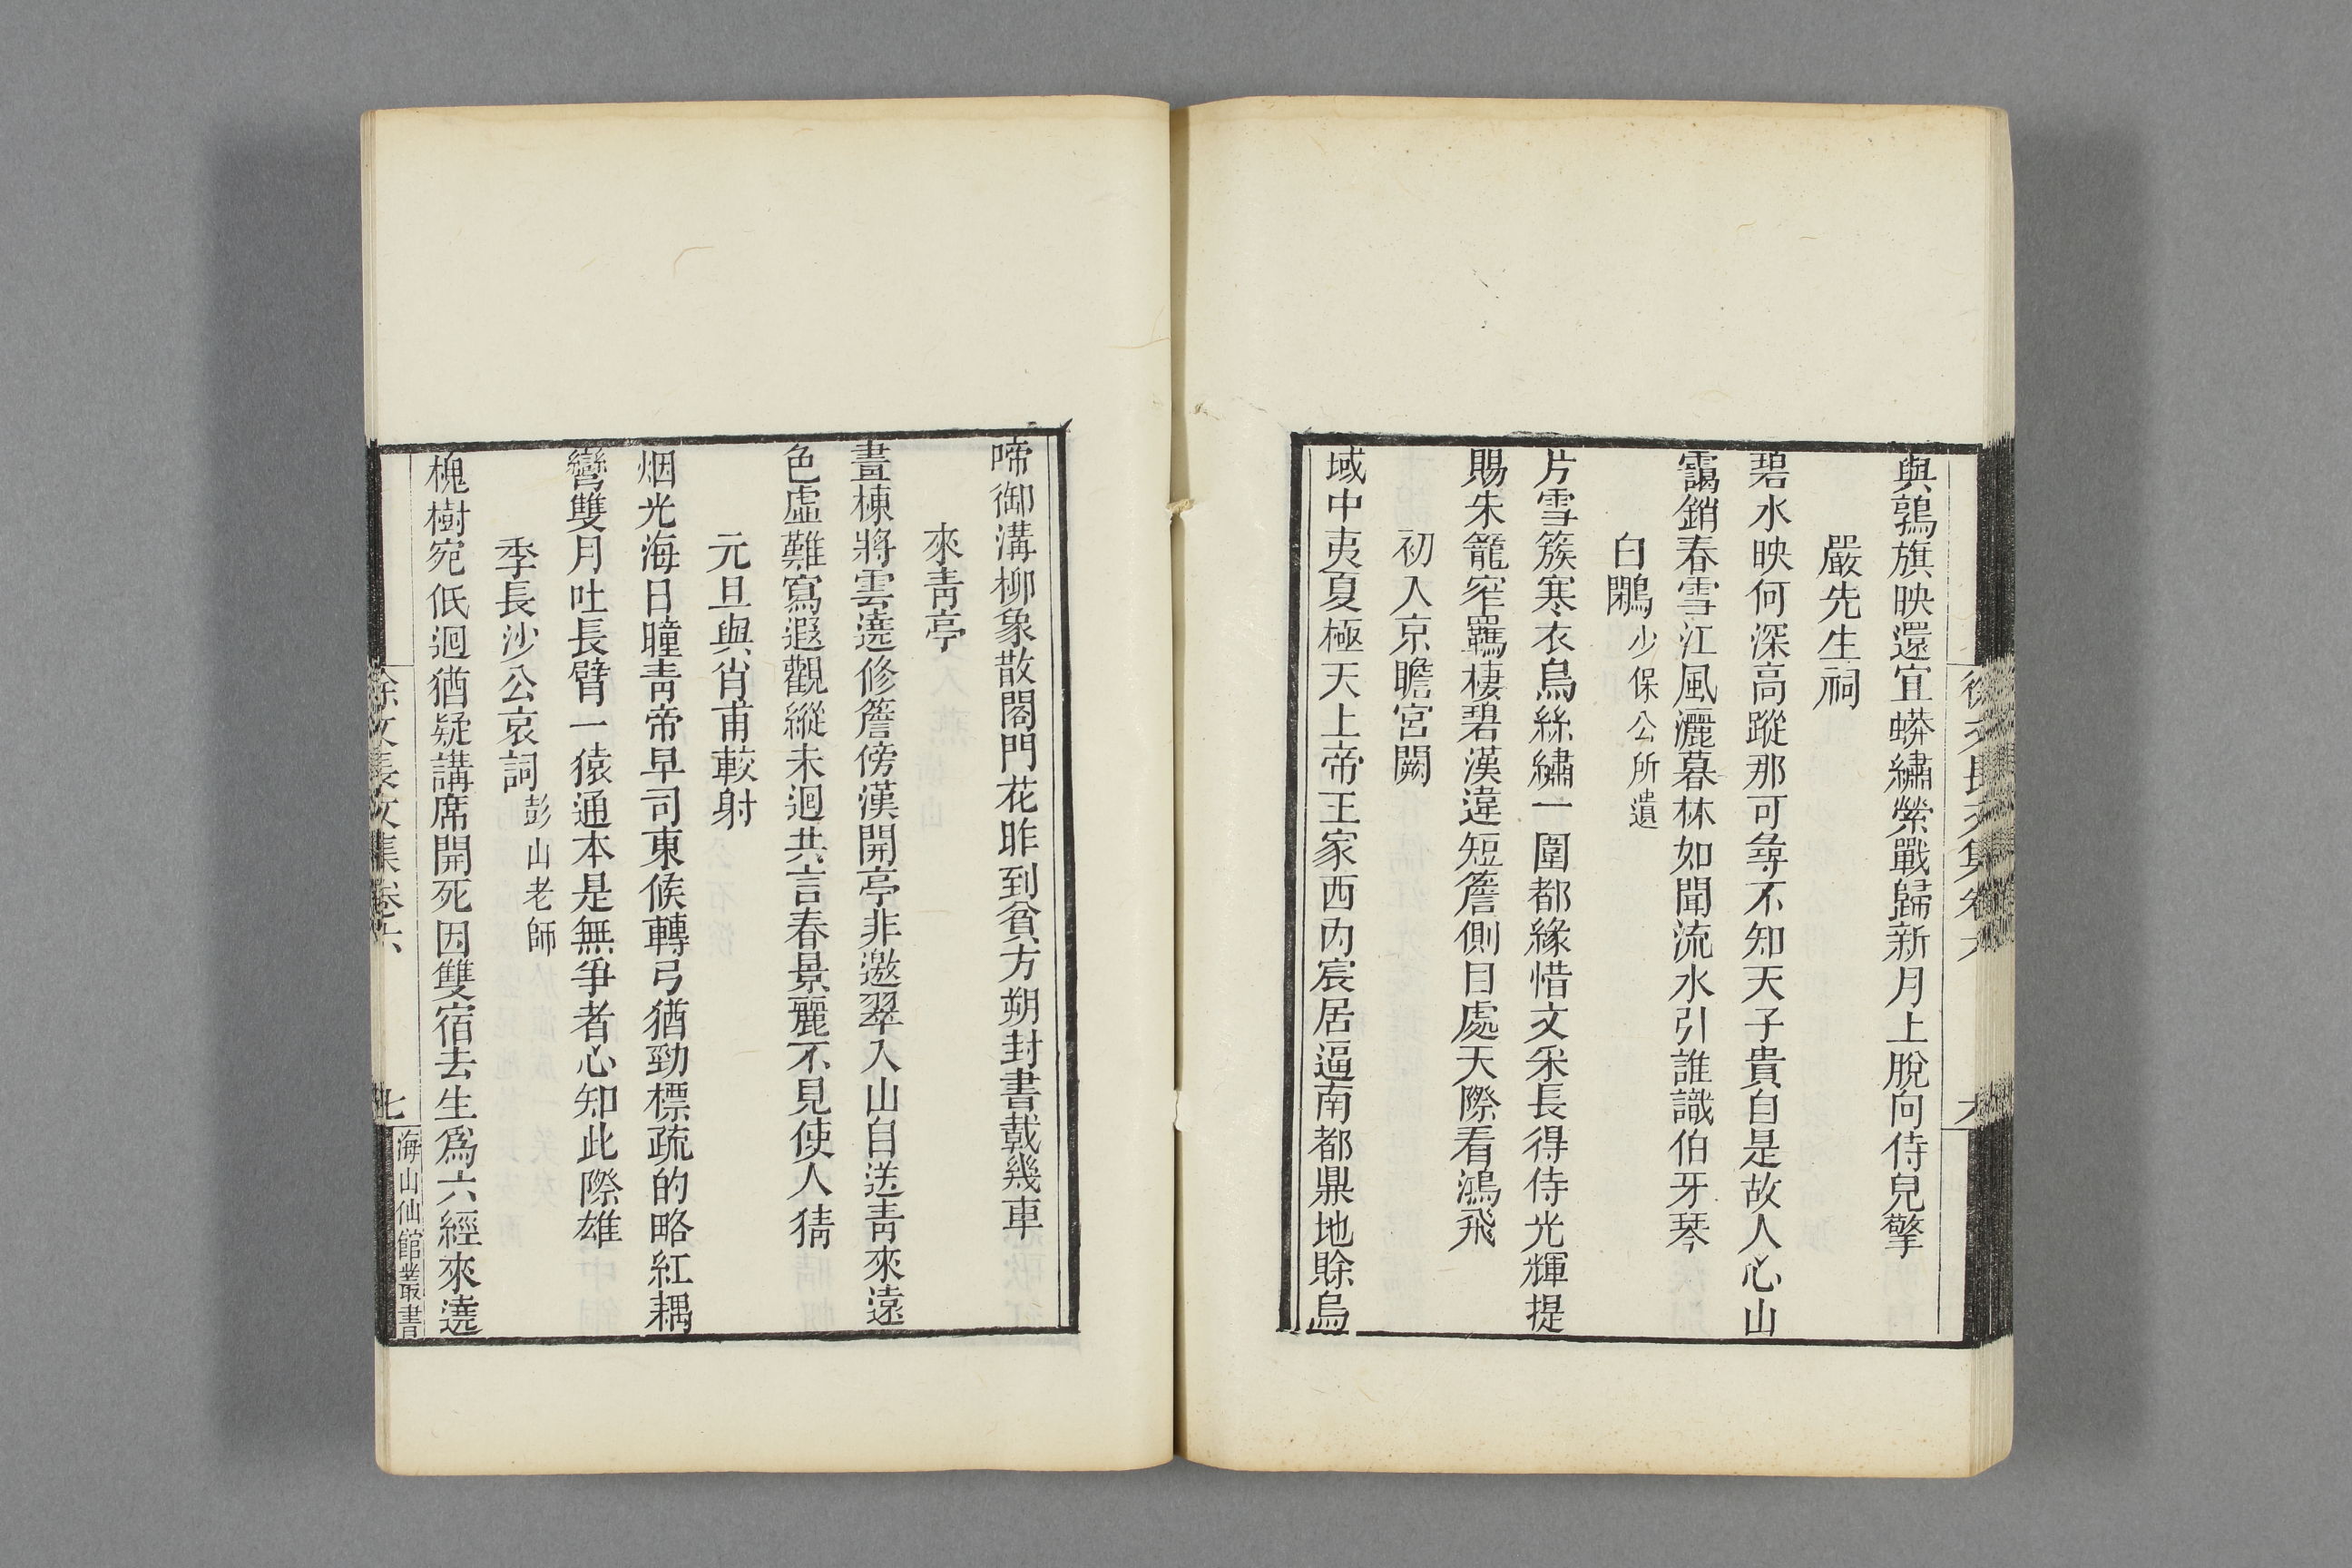 與鶉旗映還宜蟒繡縈戰歸新月上脫向侍兒擎
嚴先生祠
碧水映何深高蹤那可尋不知天子貴自是故人心山
靄銷春雪江風灑暮林如聞流水引誰識伯牙琴
白鷴少保公所遺
片雪簇寒衣烏絲繡一圍都緣惜文采長得侍光輝提
賜朱籠窄羈棲碧漢違短簷側目處天際看鴻飛
初入京瞻宮闕
域中夷夏極天上帝王家西內宸居逼南都鼎地賒烏
啼御溝柳象散閣門花昨到貧方朔封書載幾車
來青亭
畫棟將雲遶修簷傍漢開亭非邀翠入山自送青來遠
色虛難寫遐觀縱未迴共言春景麗不見使人猜
元旦與肖甫較射
烟光海日曈青帝早司東候轉弓猶勁標疏的略紅耦
彎雙月吐長臂一猿通本是無爭者心知此際雄
季長沙公哀詞彭山老師
槐樹宛低迴猶疑講席開死因雙宿去生爲六經來遶
徐文長文集卷六
七
海山仙館叢書